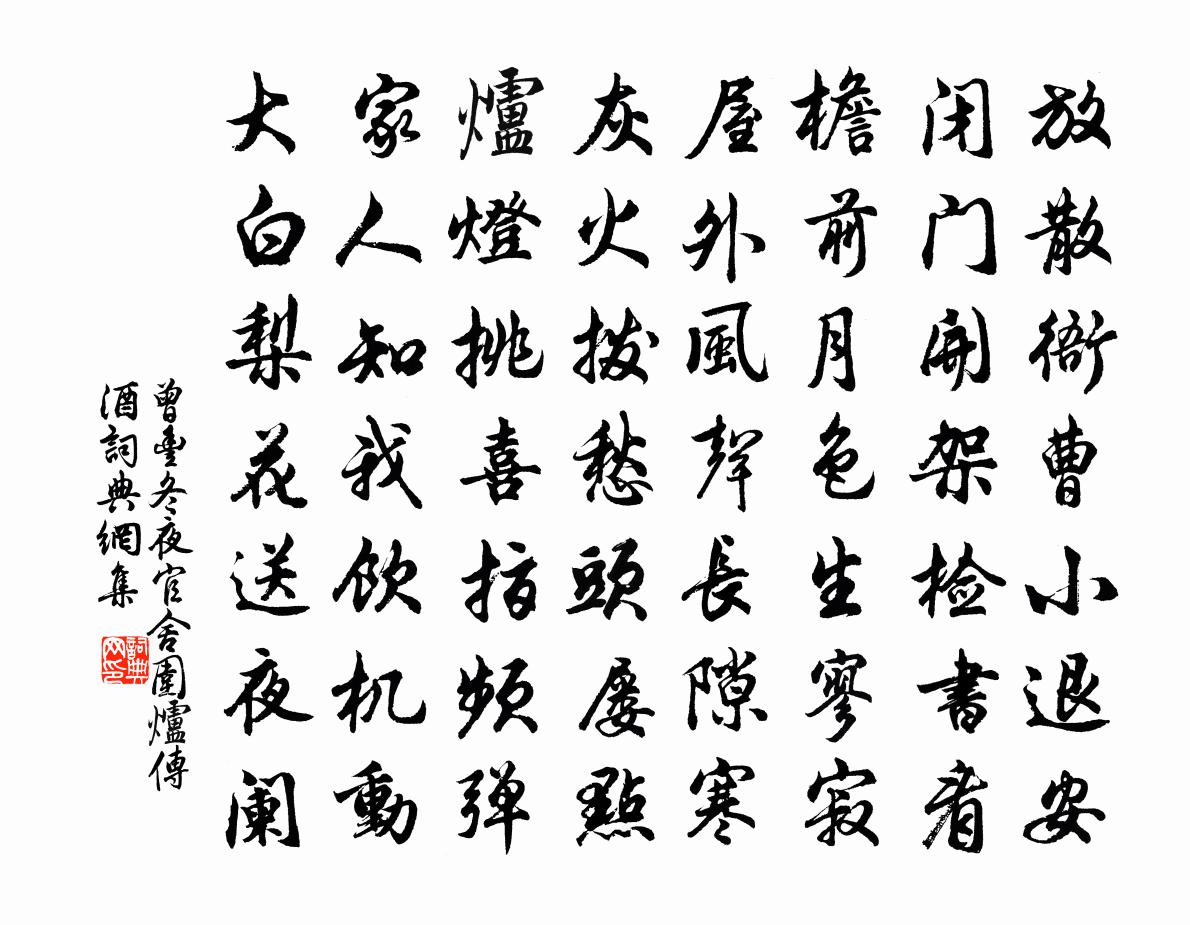 放散衙曹小退安
闭门開架检書看
檐前月色生寥寂
屋外風聲長隙寒
灰火拨愁頭屡點
爐燈挑喜指频弹
家人知我飲机動
大白梨花送夜阑
曾豊冬夜官舍圍爐傳
酒詞典網集
詞典
网印